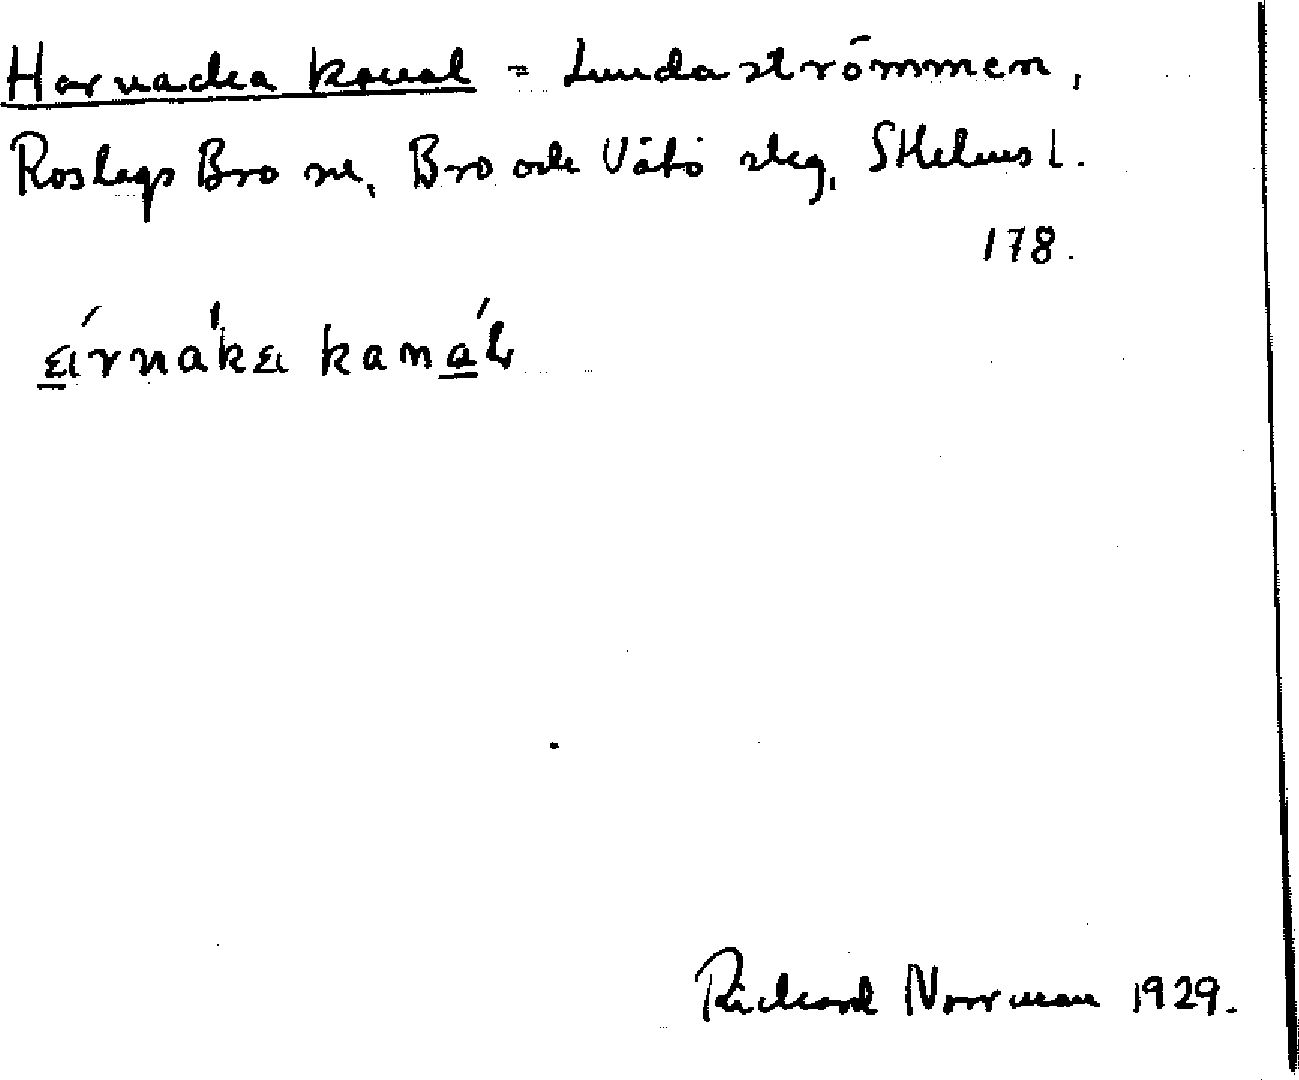 Harnacka kanal = Lundaströmmen,
Roslags Bro sn, Bro och Vätö skg, Sthlms l.
178.
kanal
Rickard Norrman 1929.